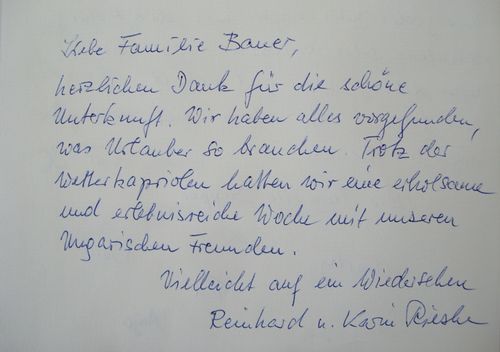 Liebe Familie Bauer,
herzlichen Dank für die schöne
Unterkunft. Wir haben alles vorgefunden,
was Urlauber so brauchen. Trotz der
Wetterkapriolen hatten wir eine erholsame
und erlebnisreiche Woche mit unseren
Ungarischen Freunden.
Vielleicht auf ein Wiedersehen
Reinhard u. Karin